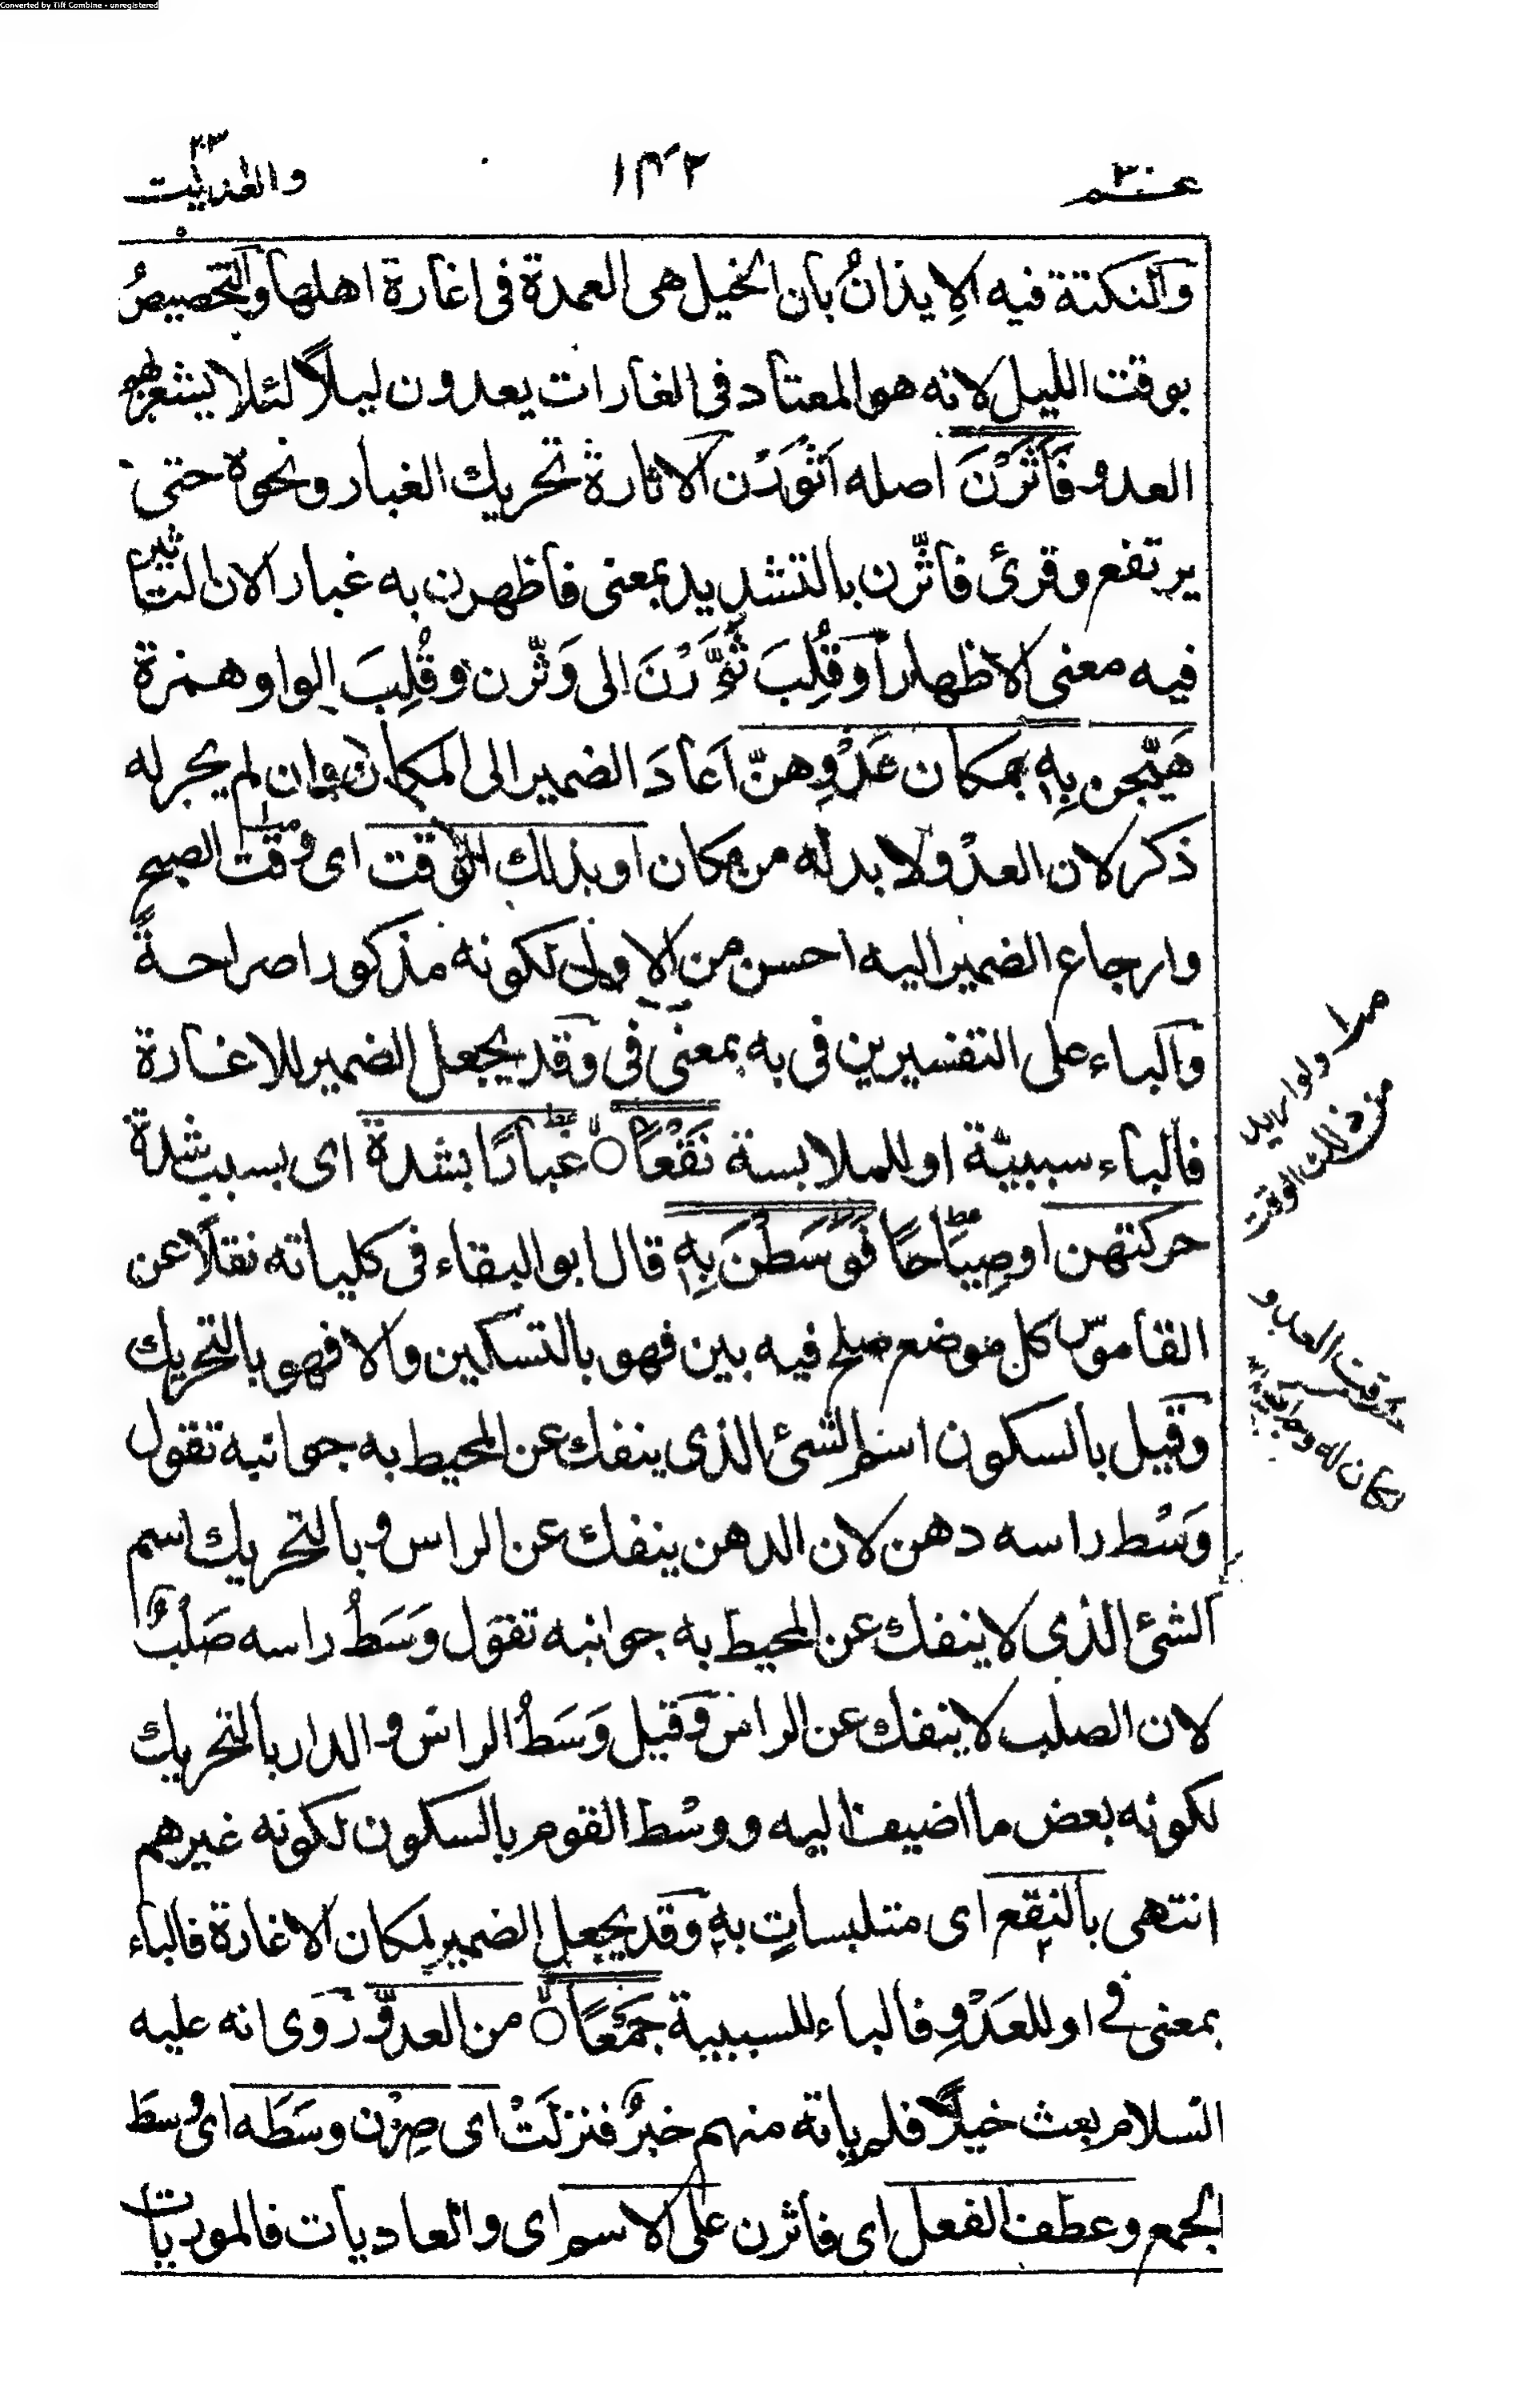 Converted by Tiff Combine - unregistered
عم ٣٠
١٤٢
والعديت
والنكتة فيه الايذانُ بان الخيل هى العمدة فى اغارة اهلها والتخصيصُ
بوقت الليل لانه هو المعتاد فى الغارات يعدون ليلاً لئلا يشعر بهم
العدو فَاَثَرْنَ اصله اَثْوَرْن الاثارة تحريك الغبار ونحوه حتى
يرتفع وقرئ فاثّرن بالتشديد بمعنى فاظهرن به غبار الان التاثير
فيه معنى الاظهار او قُلِبَ ثَوَّرْنَ الى وَثّرن وقُلِبَ الواو همزة
هَيّجن بِهٖ بمكان عَدْوِهنّ اَعادَ الضمير الى المكان وان لم يجر له
ذكر لان العدْو لا بد له من مكان او بذلك الوقت اى وقت الصبح
وارجاع الضمير اليه احسن من الاولى لكونه مذكورا صراحةً
والباء على التفسيرين فى به بمعنى فى وقد يجعل الضمير للاغارة
فالباء سببيّة او للملابسة نَقْعًا غبارًا بشدة اى بسبب شدة
حركتهن او صِيَاحًا فَوَسَطْنَ بِهٖ قال ابو البقاء فى كلياته نقلًا عن
القاموس كل موضع صلح فيه بين فهو بالتسكين والا فهو بالتحريك
وقيل بالسكون اسم الشئ الذى ينفك عن المحيط به جوانبه تقول
وَسْط راسه دهن لان الدهن ينفك عن الراس وبالتحريك اسم
الشئ الذى لا ينفك عن المحيط به جوانبه تقول وَسَطُ راسه صَلْبٌ
لان الصلب لا ينفك عن الراس وقيل وَسَطُ الراس والدار بالتحريك
لكونه بعض ما اضيف اليه ووسْط القوم بالسكون لكونه غيرهم
انتهى بالنقع اى متلبساتٍ به وقد يجعل الضمير لمكان الاغارة فالباء
بمعنى فى او للعَدْوِ فالباء للسببية جَمْعًا من العدوّ رُوى انه عليه
السلام بعث خيلًا فلم ياته منهم خبرٌ فنزلَتْ اى صِرْن وسَطَه اى وسط
الجمع وعطف الفعل اى فاثرن على الاسم اى والعاديات فالموريات